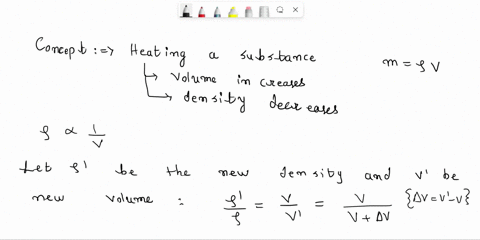 Concept :⇒ Heating a substance
m = ρ V
↳ volume increases
↳ density decreases
ρ ∝ 1/V
Let ρ' be the new density and V' be
new volume : ρ'/ρ = V/V' = V/(V + ΔV) {ΔV = V' - V}